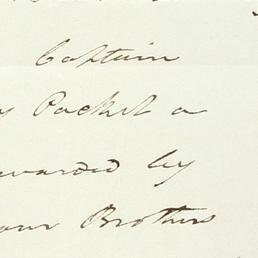 Captain
y Packet a
warded by
our Brothers